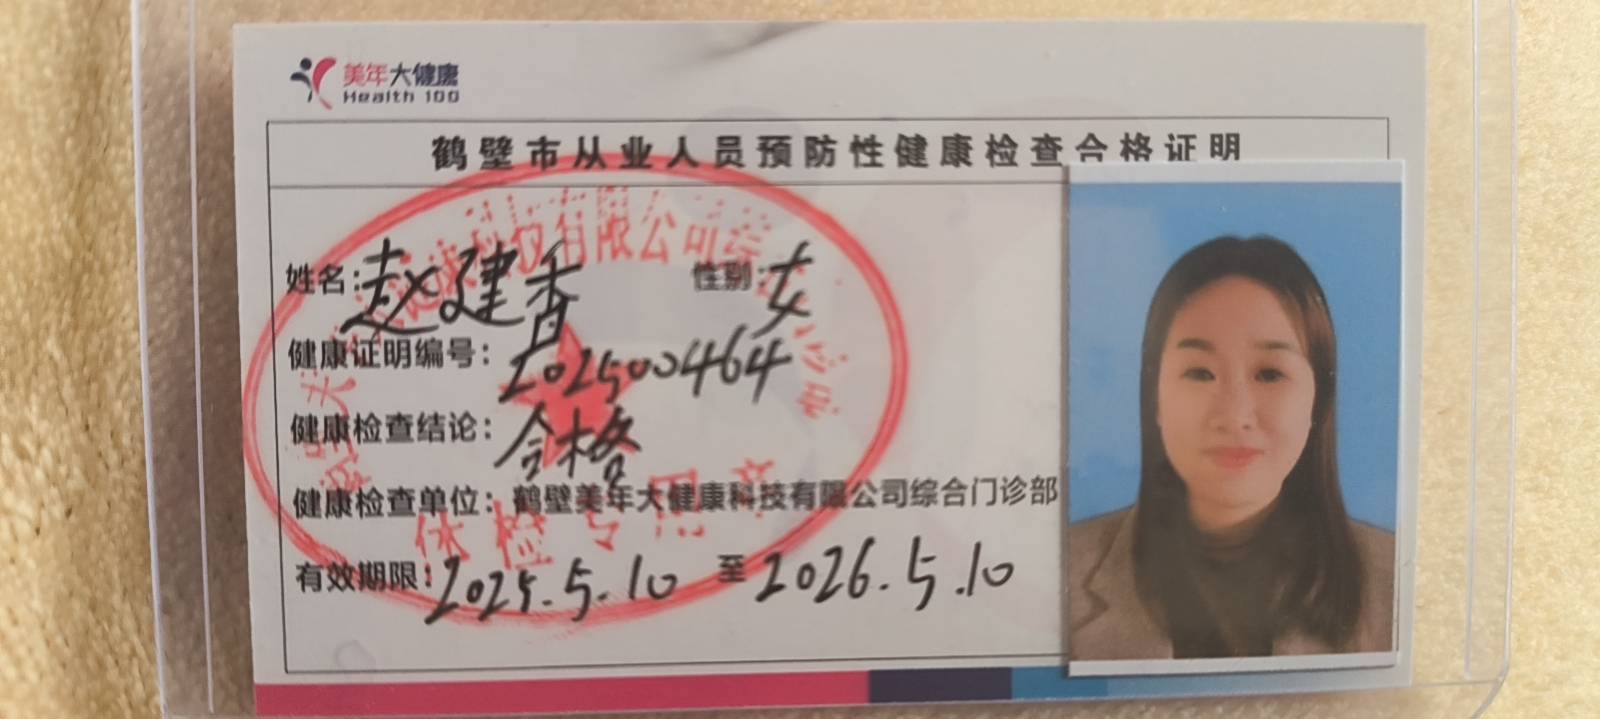 美年大健康
Health 100
鹤壁市从业人员预防性健康检查合格证明
姓名：赵建香 性别：女
健康证明编号：202500464
健康检查结论：合格
健康检查单位：鹤壁美年大健康科技有限公司综合门诊部
有效期限：2025.5.10 至 2026.5.10
体检专用章